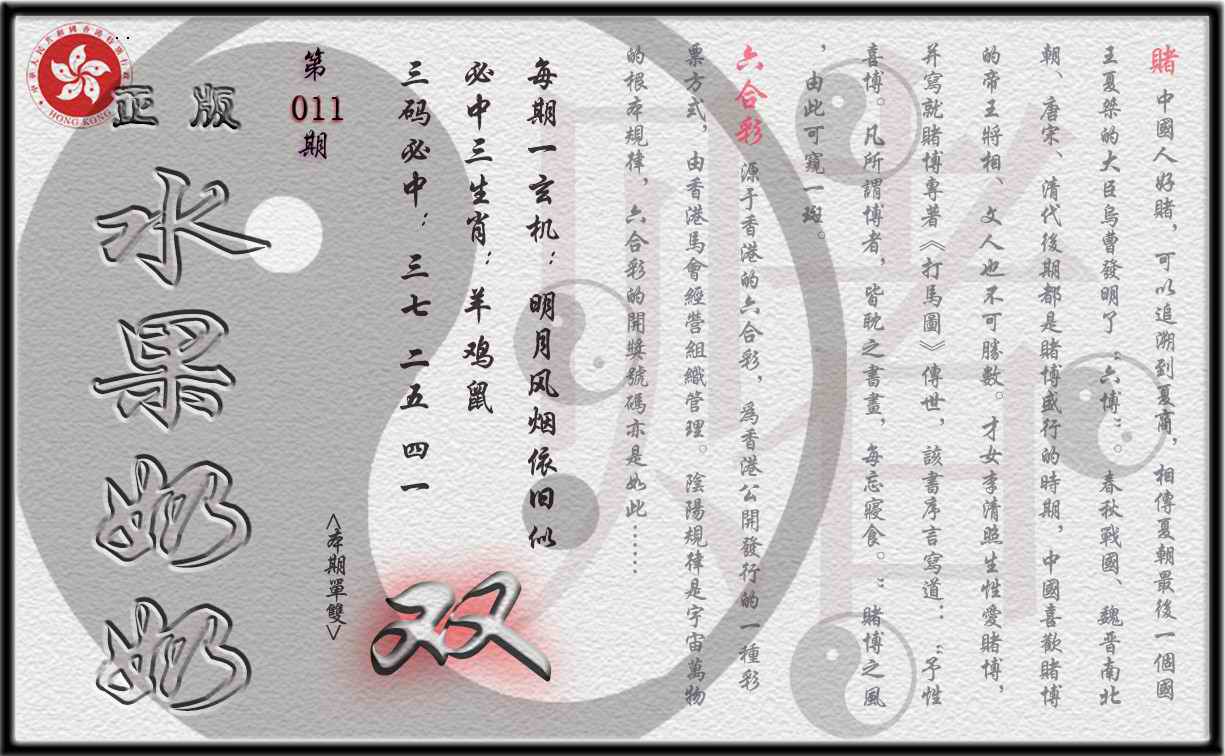 賭 中國人好賭，可以追溯到夏商，相傳夏朝最後一個國
王夏桀的大臣烏曹發明了“六博”。春秋戰國、魏晋南北
朝、唐宋、清代後期都是賭博盛行的時期，中國喜歡賭博
的帝王將相、文人也不可勝數。才女李清照生性愛賭博，
并寫就賭博專著《打馬圖》傳世，該書序言寫道：“予性
喜博。凡所謂博者，皆耽之書畫，每忘寢食。”賭博之風
，由此可窺一斑。
六合彩 源于香港的六合彩，爲香港公開發行的一種彩
票方式，由香港馬會經營組織管理。陰陽規律是宇宙萬物
的根本規律，六合彩的開獎號碼亦是如此……
每期一玄机：明月风烟依旧似
必中三生肖：羊鸡鼠
三码必中：三七 二五 四一
<本期單雙>
双
第
011
期
正版
水果奶奶
中華人民共和國香港特別行政區
HONG KONG
賭